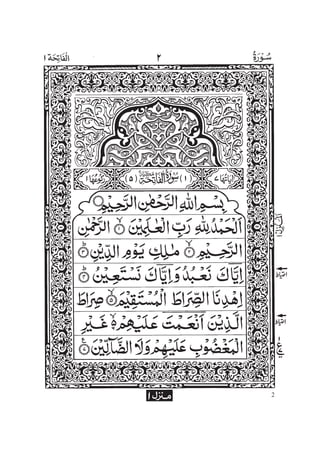 سُوْرَةُ ٢ اَلْفَاتِحَة ١
اٰيَاتُهَا ٧ (١) سُوْرَةُ الْفَاتِحَةِ (٥) رُكُوْعُهَا ١
بِسْمِ اللّٰهِ الرَّحْمٰنِ الرَّحِيْمِ
اَلْحَمْدُ لِلّٰهِ رَبِّ الْعٰلَمِيْنَ ١ الرَّحْمٰنِ
الرَّحِيْمِ ٢ مٰلِكِ يَوْمِ الدِّيْنِ ٣
اِيَّاكَ نَعْبُدُ وَاِيَّاكَ نَسْتَعِيْنُ ٤
اِهْدِنَا الصِّرَاطَ الْمُسْتَقِيْمَ ٥ صِرَاطَ
الَّذِيْنَ اَنْعَمْتَ عَلَيْهِمْ ٦ غَيْرِ
الْمَغْضُوْبِ عَلَيْهِمْ وَلَا الضَّآلِّيْنَ ٧
منزل ١
2